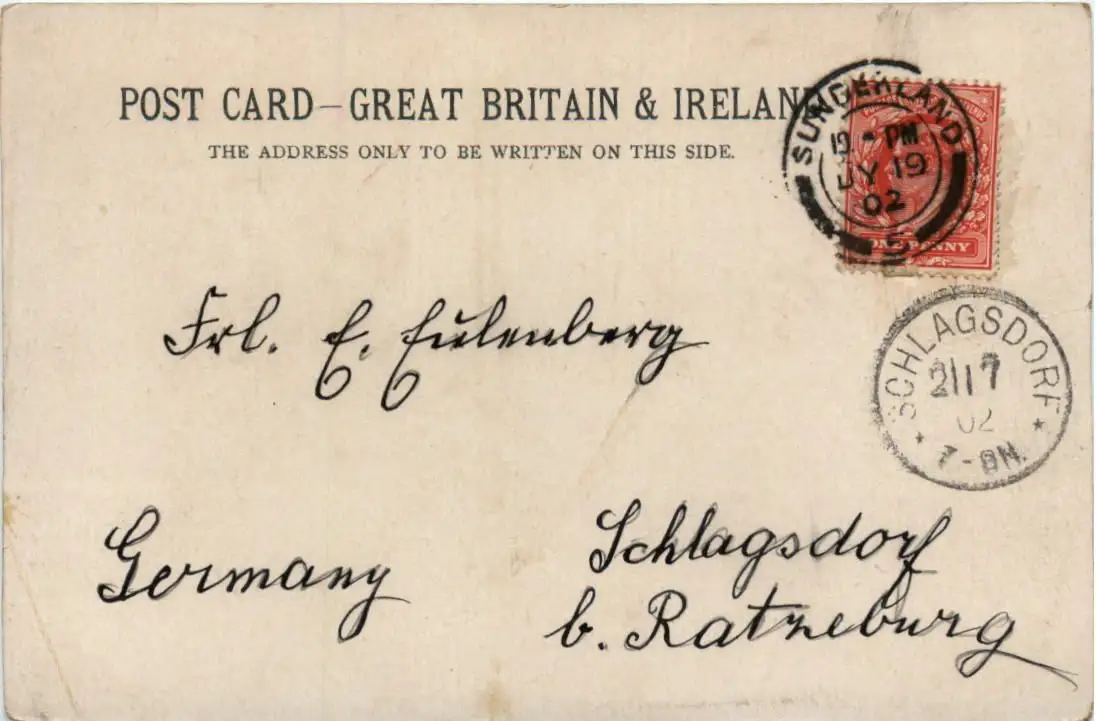 POST CARD–GREAT BRITAIN & IRELAND
THE ADDRESS ONLY TO BE WRITTEN ON THIS SIDE.
SUNDERLAND
PM
JY 19
02
5
ONE PENNY
SCHLAGSDORF
21 7
02
7-8N.
Frl. E. Eulenberg
Germany
Schlagsdorf
b. Ratzeburg